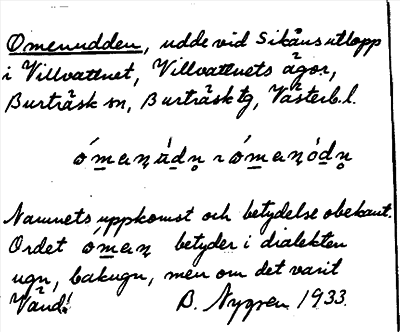 Omenudden, udde vid Sikåns utlopp
i Villvattnet, Villvattnets ägor,
Burträsk sn, Burträsk tg, Västerb. l.
óma̲nn̥ádn̥u ~ óma̲nn̥ódn̥u
Namnets uppkomst och betydelse obekant.
Ordet óma̲n betyder i dialekten
ugn, bakugn, men om det varit
B. Nygren 1933.